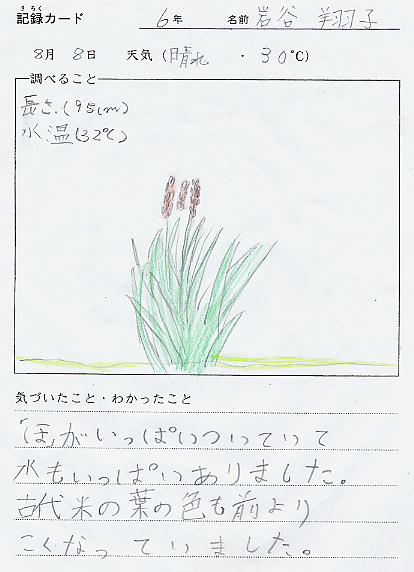 きろく
記録カード 6年 名前 岩谷 翔子
8月 8日 天気(晴れ ・ 30℃)
調べること
長さ.(95cm)
水温(32℃)
気づいたこと・わかったこと
「ほ」がいっぱいついていて
水もいっぱいありました。
古代米の葉の色も前より
こくなっていました。